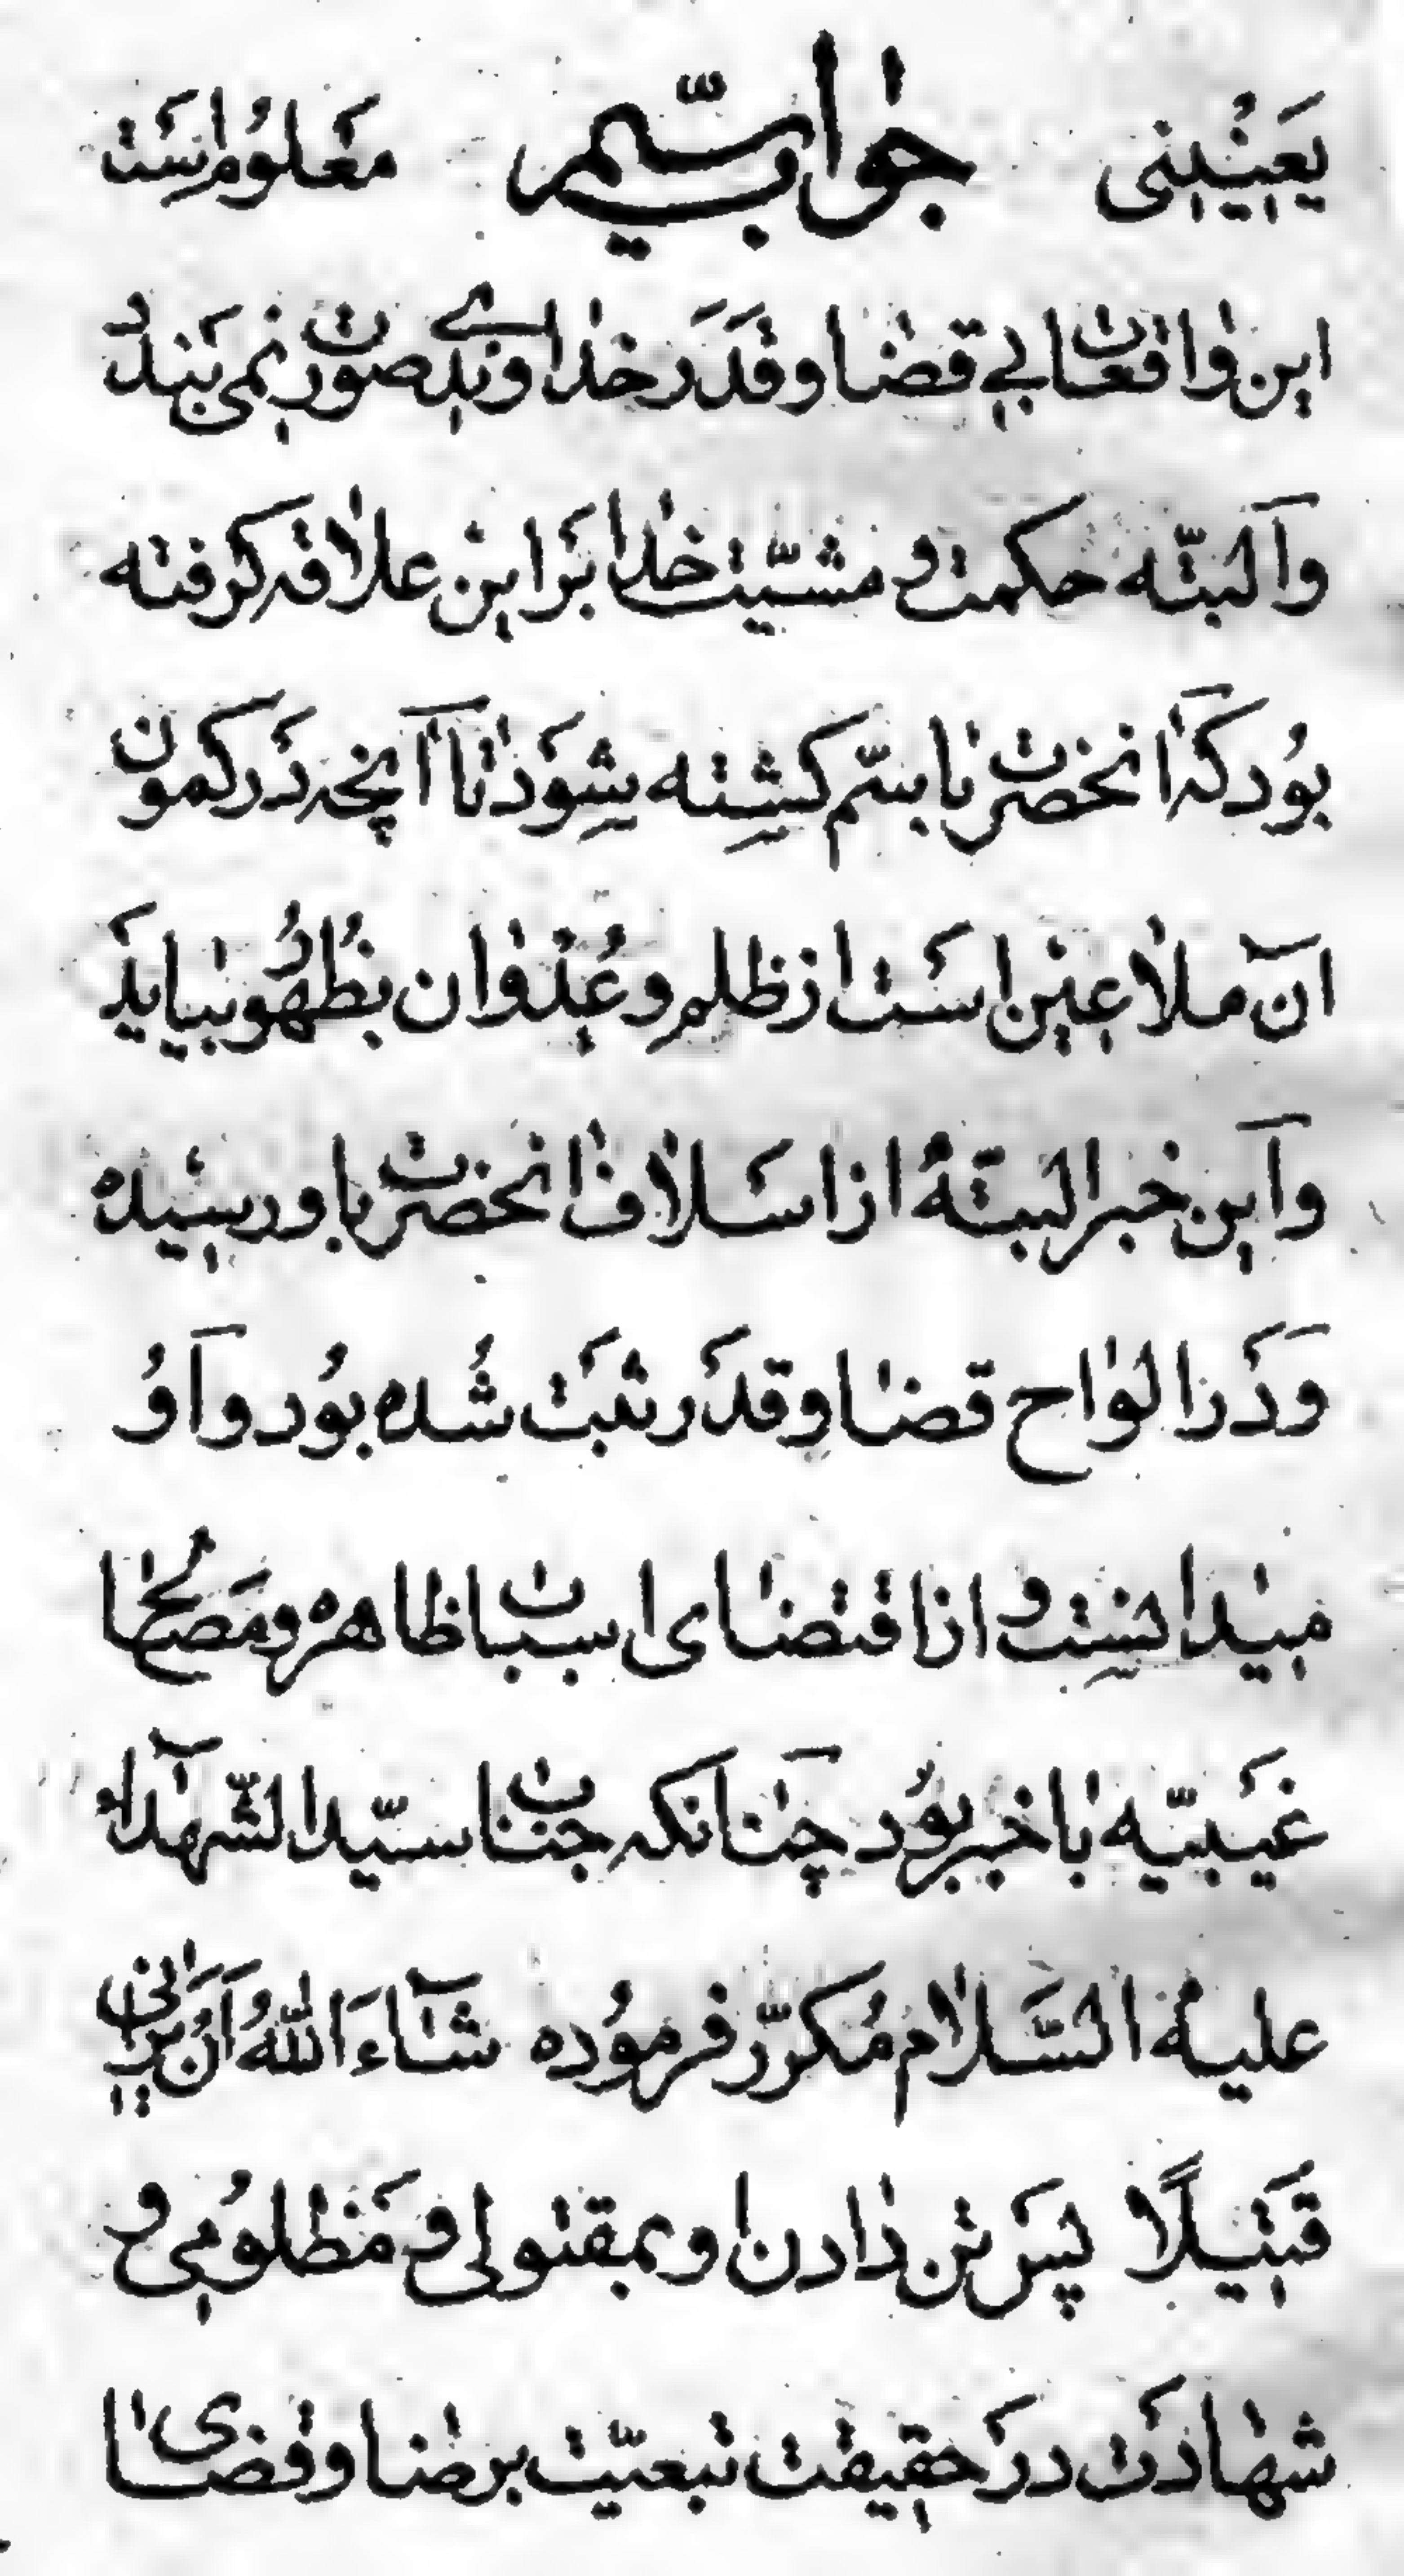 یَعیْنی جوابِ سیّم معَلوُم اسَت
این وٰاقعٰات بی قضٰا و قَدَر خدٰاوندےِ صورت نمی بَندَد
و اَلبتّه حکمت و مشیّت خدٰا بَر این علاٰقه کرفته
بوُد کهَ انحضرت با سمّ کشِته شِوَد تٰا اَنچه دَر کمون
انَ ملاٰعین اسَت از ظلم و عُدوٰان بظُهوُر بیٰاید
و اَین خبر البتّهٔ از اسَلاٰف انحضرت باو رسیده
وَ دَر الوٰاح قضٰا و قدَر ثبَت شُده بوُد و اَوُ
میٰدانسِت و از اقتضٰای اسبٰاب ظاهرهٔ و مَصٰلح
غَیبیّه بٰا خبر بوُد چنٰانکه جنٰاب سیّدالشّهدٰاء
علیهٔ السَّلاٰم مُکرّر فرموُده شٰآءَ اللّٰهُ اَنْ یَرٰانی
قَتیلًا پسَ تن دٰادن او بمقتولی و مَظلوُمی و
شهٰادَت در حَقیقت تبعیّت بر رضٰا و قضٰای